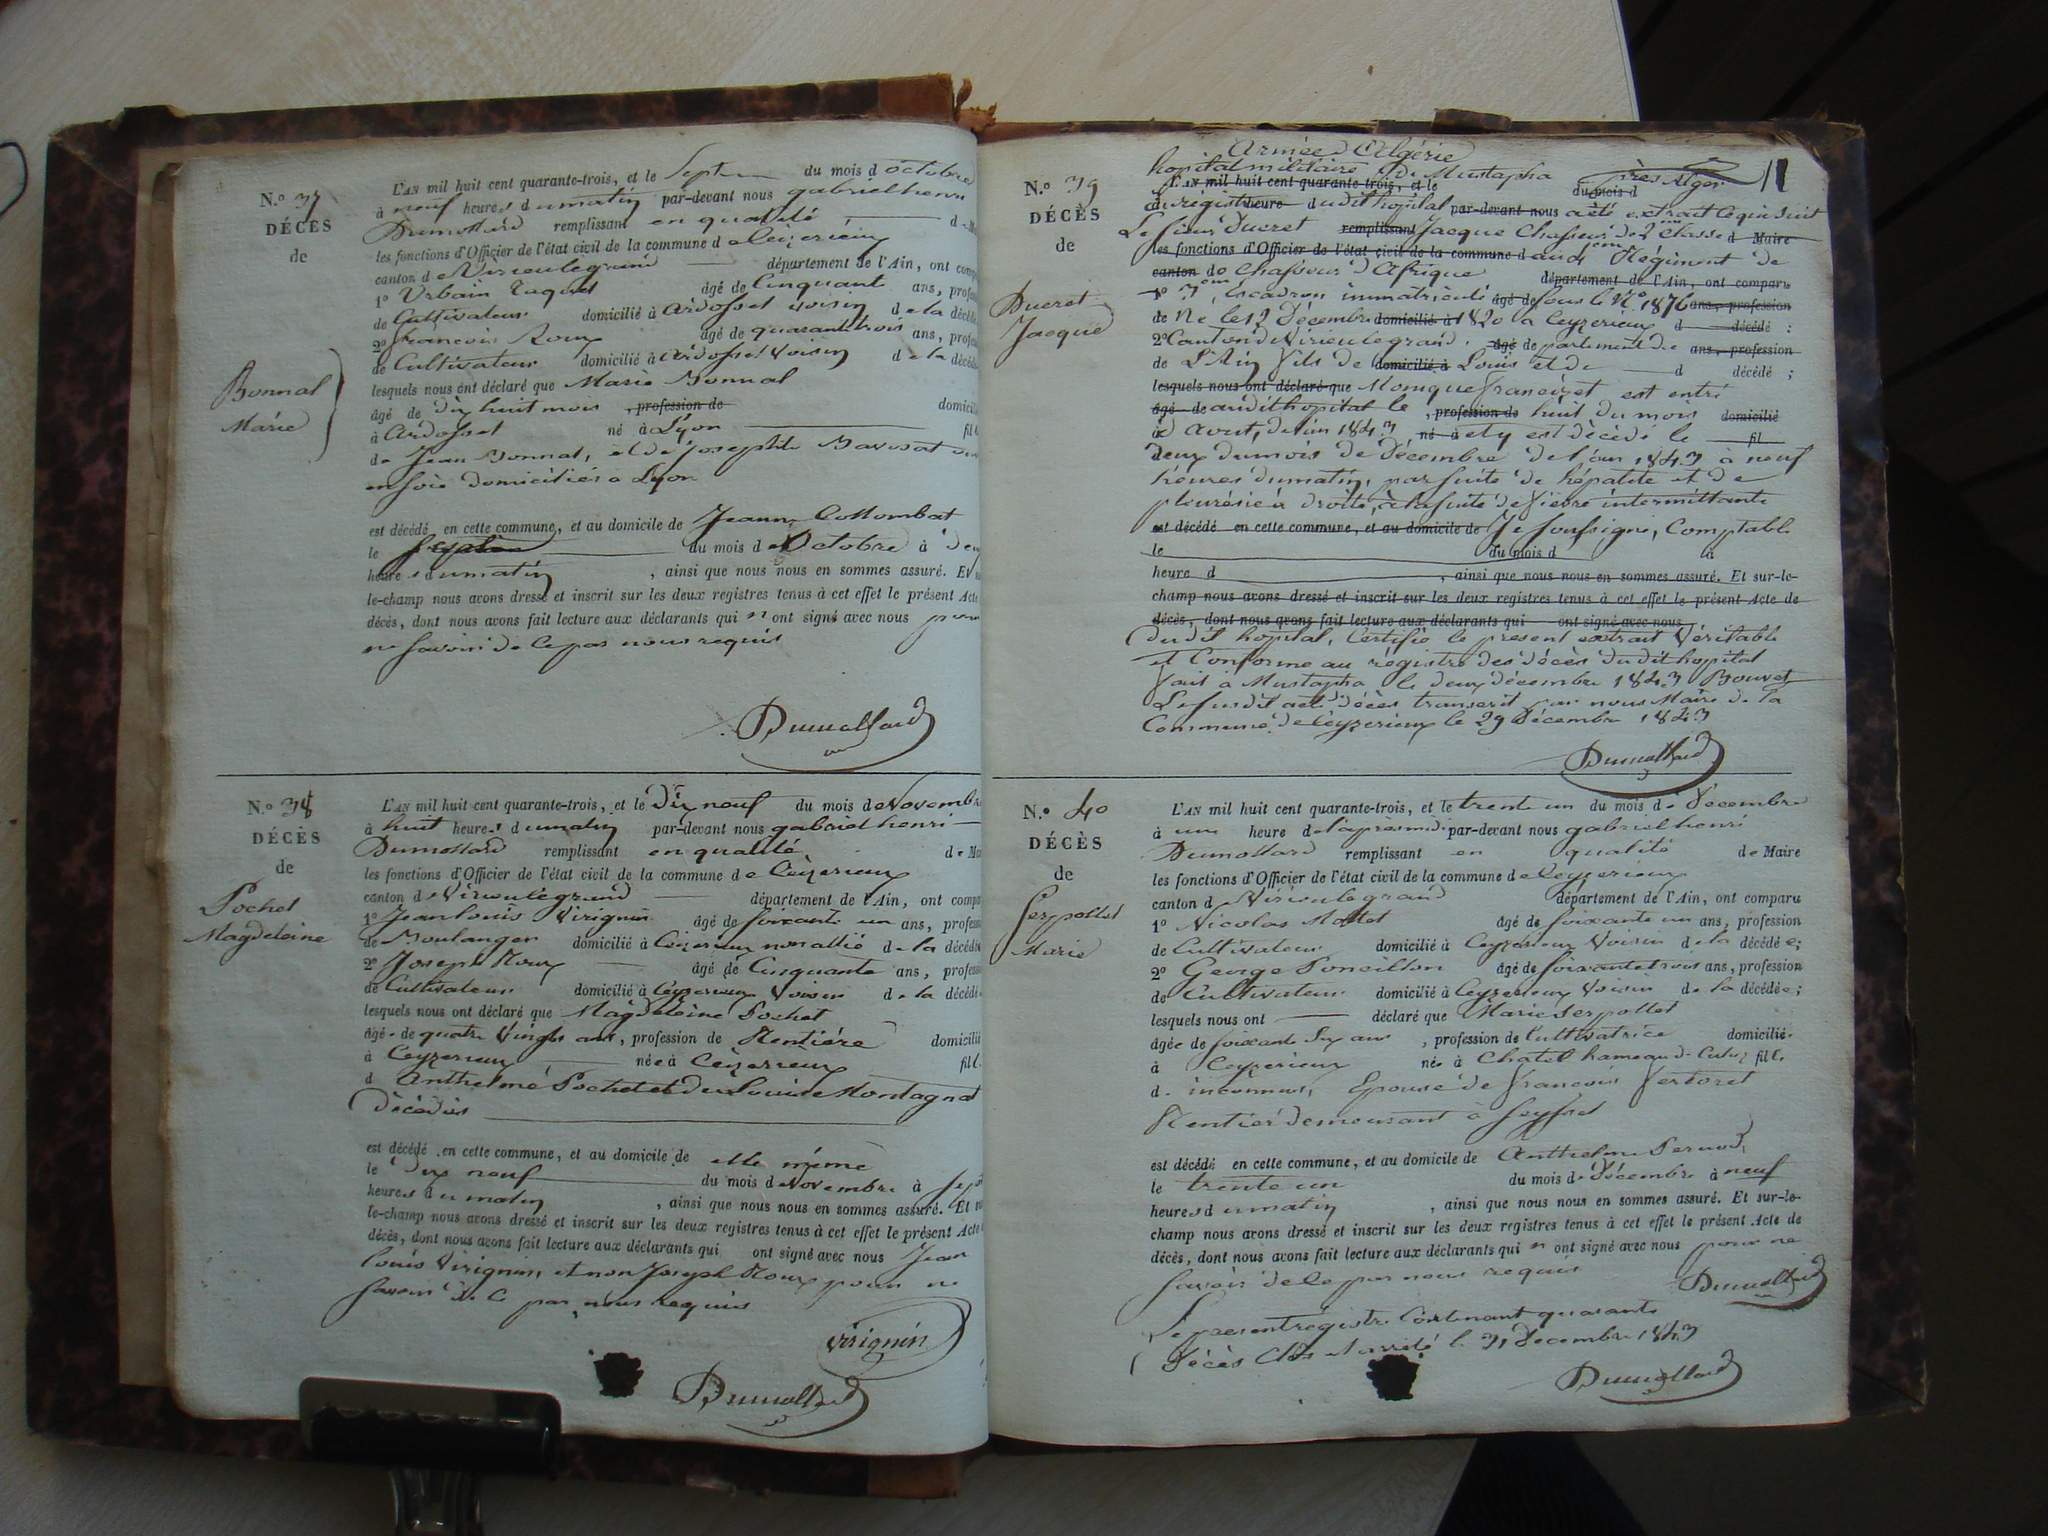 N.º 37
DÉCÈS
de
Bonnal
Marie
L'AN mil huit cent quarante-trois, et le Sept du mois d octobre
à neuf heures du matin par-devant nous gabriel henri
Dumollard remplissant en qualité
les fonctions d'Officier de l'état civil de la commune de Ceizerieux
canton de Virieulegrand département de l'Ain, ont comp
1º Urbain âgé de Cinquante ans, profes
de Cultivateur domicilié à Ardosset voisin de la décéd
2º francois Roux âgé de quarantetrois ans, profes
de Cultivateur domicilié à Ardosset Voisin de la décédé
lesquels nous ont déclaré que Marie Bonnal
âgé de dix huit mois , profession de domicili
à Ardosset né à Lyon fil
de Jean Bonnal, et de Josephte
en Soie domiciliés a Lyon
est décédé en cette commune, et au domicile de Jeanne Collombat
le du mois d octobre à deux
heures du matin , ainsi que nous nous en sommes assuré. Et
le-champ nous avons dressé et inscrit sur les deux registres tenus à cet effet le présent Acte
décès, dont nous avons fait lecture aux déclarants qui n ont signé avec nous pour
ne Savoir de ce par nous requis
Dumollard
N.º 38
DÉCÈS
de
Pochet
Magdeleine
L'AN mil huit cent quarante-trois, et le Dix neuf du mois de Novembre
à huit heures du matin par-devant nous gabriel henri
Dumollard remplissant en qualité de Mai
les fonctions d'Officier de l'état civil de la commune de Ceizerieux
canton de Virieulegrand département de l'Ain, ont compa
1º Jean Louis Virignin âgé de Soixante un ans, profess
de Boulanger domicilié à Ceizerieux non allié de la décédé
2º Joseph Roux âgé de Cinquante ans, profess
de Cultivateur domicilié à Ceyzerieux Voisin de la décédé
lesquels nous ont déclaré que Magdeleine Pochet
âgé de quatre Vingts ans, profession de Rentière domicilié
à Ceyzerieux née à Ceizerieux fille
d Anthelme Pochet et de Louise Montagnat
décédés
est décédé en cette commune, et au domicile de elle même
le Dix neuf du mois de Novembre à Sept
heures du matin , ainsi que nous nous en sommes assuré. Et
le-champ nous avons dressé et inscrit sur les deux registres tenus à cet effet le présent Acte
décès, dont nous avons fait lecture aux déclarants qui ont signé avec nous Jean
Louis Virignin, et non Joseph Roux pour ne
Savoir de ce par nous requis
Virignin
Dumollard
11
N.º 39
DÉCÈS
de
Ducret
Jacque
Armée d'Algérie
hopital militaire de Mustapha près Alger
L'AN mil huit cent quarante-trois, et le du mois d
du registre heure dudit hopital par-devant nous a été extrait ce qui Suit
Le Sieur Ducret remplissant Jacque Chasseur de 2 Classe d Maire
les fonctions d'Officier de l'état civil de la commune d au Régiment de
canton de Chasseur d'Afrique département de l'Ain, ont comparu
1º Escadron immatriculé âgé de Sous le Nº 1876 ans, profession
de Né le 12 Décembre domicilié à 1820 a Ceyzerieux d décédé ;
2º Canton de Virieulegrand, âgé département de ans, profession
de L'Ain fils de domicilié à Louis et de d décédé ;
lesquels nous ont déclaré que Monique francizet est entré
âgé de audit hopital le , profession de huit du mois domicilié
à d'Aout, de l'an 1843 né à et y est décédé le fil
deux du mois de décembre de l'an 1843 à neuf
heures du matin, par Suite de hépatite et de
pleurésie à droite, à la suite de fièvre intermittante
est décédé en cette commune, et au domicile de Je Soussigné, Comptable
le du mois d à
heure d , ainsi que nous nous en sommes assuré. Et sur-le-
champ nous avons dressé et inscrit sur les deux registres tenus à cet effet le présent Acte de
décès, dont nous avons fait lecture aux déclarants qui ont signé avec nous
dudit hopital, Certifie le present extrait Véritable
et Conforme au régistre des décès dudit hopital
fait à Mustapha le deux décembre 1843 Bouvet
Le susdit acte de décès transcrit par nous Maire de la
Commune de Ceyzerieux le 29 décembre 1843
Dumollard
N.º 40
DÉCÈS
de
Serpollet
Marie
L'AN mil huit cent quarante-trois, et le trente un du mois de Décembre
à une heure de l'après midi par-devant nous gabriel henri
Dumollard remplissant en qualité de Maire
les fonctions d'Officier de l'état civil de la commune de Ceyzerieux
canton d Virieulegrand département de l'Ain, ont comparu
1º Nicolas Mollet âgé de Soixante un ans, profession
de Cultivateur domicilié à Ceyzerieux Voisin de la décédée;
2º George Poncillon âgé de Soixantetrois ans, profession
de Cultivateur domicilié à Ceyzerieux Voisin de la décédée;
lesquels nous ont déclaré que Marie Serpollet
âgée de Soixante Six ans , profession de Cultivatrice domiciliée
à Ceyzerieux née à Chatel hameau de fille
d. inconnus, Epouse de francois Vertoret
Rentier demeurant à Seyssel
est décédé en cette commune, et au domicile de Anthelme Pernod,
le trente un du mois de Décembre à neuf
heures du matin , ainsi que nous nous en sommes assuré. Et sur-le-
champ nous avons dressé et inscrit sur les deux registres tenus à cet effet le présent Acte de
décès, dont nous avons fait lecture aux déclarants qui n ont signé avec nous pour ne
Savoir de ce par nous requis
Dumollard
Le present registre Contenant quarante
Décès Clos et arrêté le 31 Decembre 1843
Dumollard